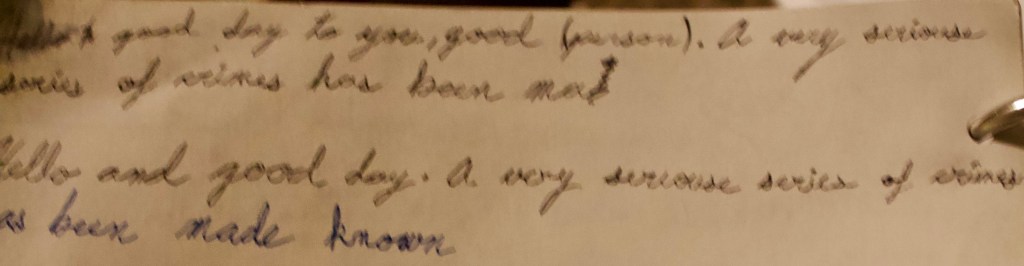 good day to you, good (person). A very seriouse
series of crimes has been mad
Hello and good day. A very seriouse series of crimes
as been made known